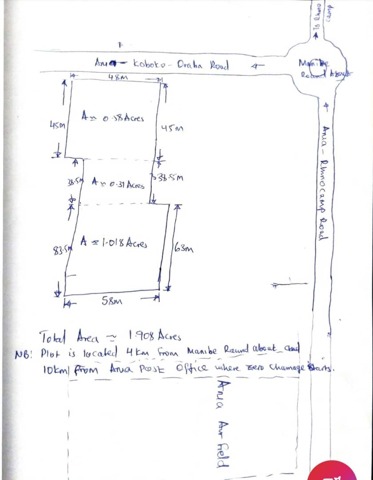 To Rhino
camp
Arua - Koboko - Oraba Road
Manibe
Round about
48m
45m
A ≈ 0.58 Acres
45m
38.5m
A ≈ 0.31 Acres
38.5m
83.5m
A ≈ 1.018 Acres
63m
58m
Arua - Rhinocamp Road
Total Area ≈ 1.908 Acres
NB: Plot is located 4km from Manibe Round about and
10km from Arua Post Office where zero chainage starts.
Arua Air field